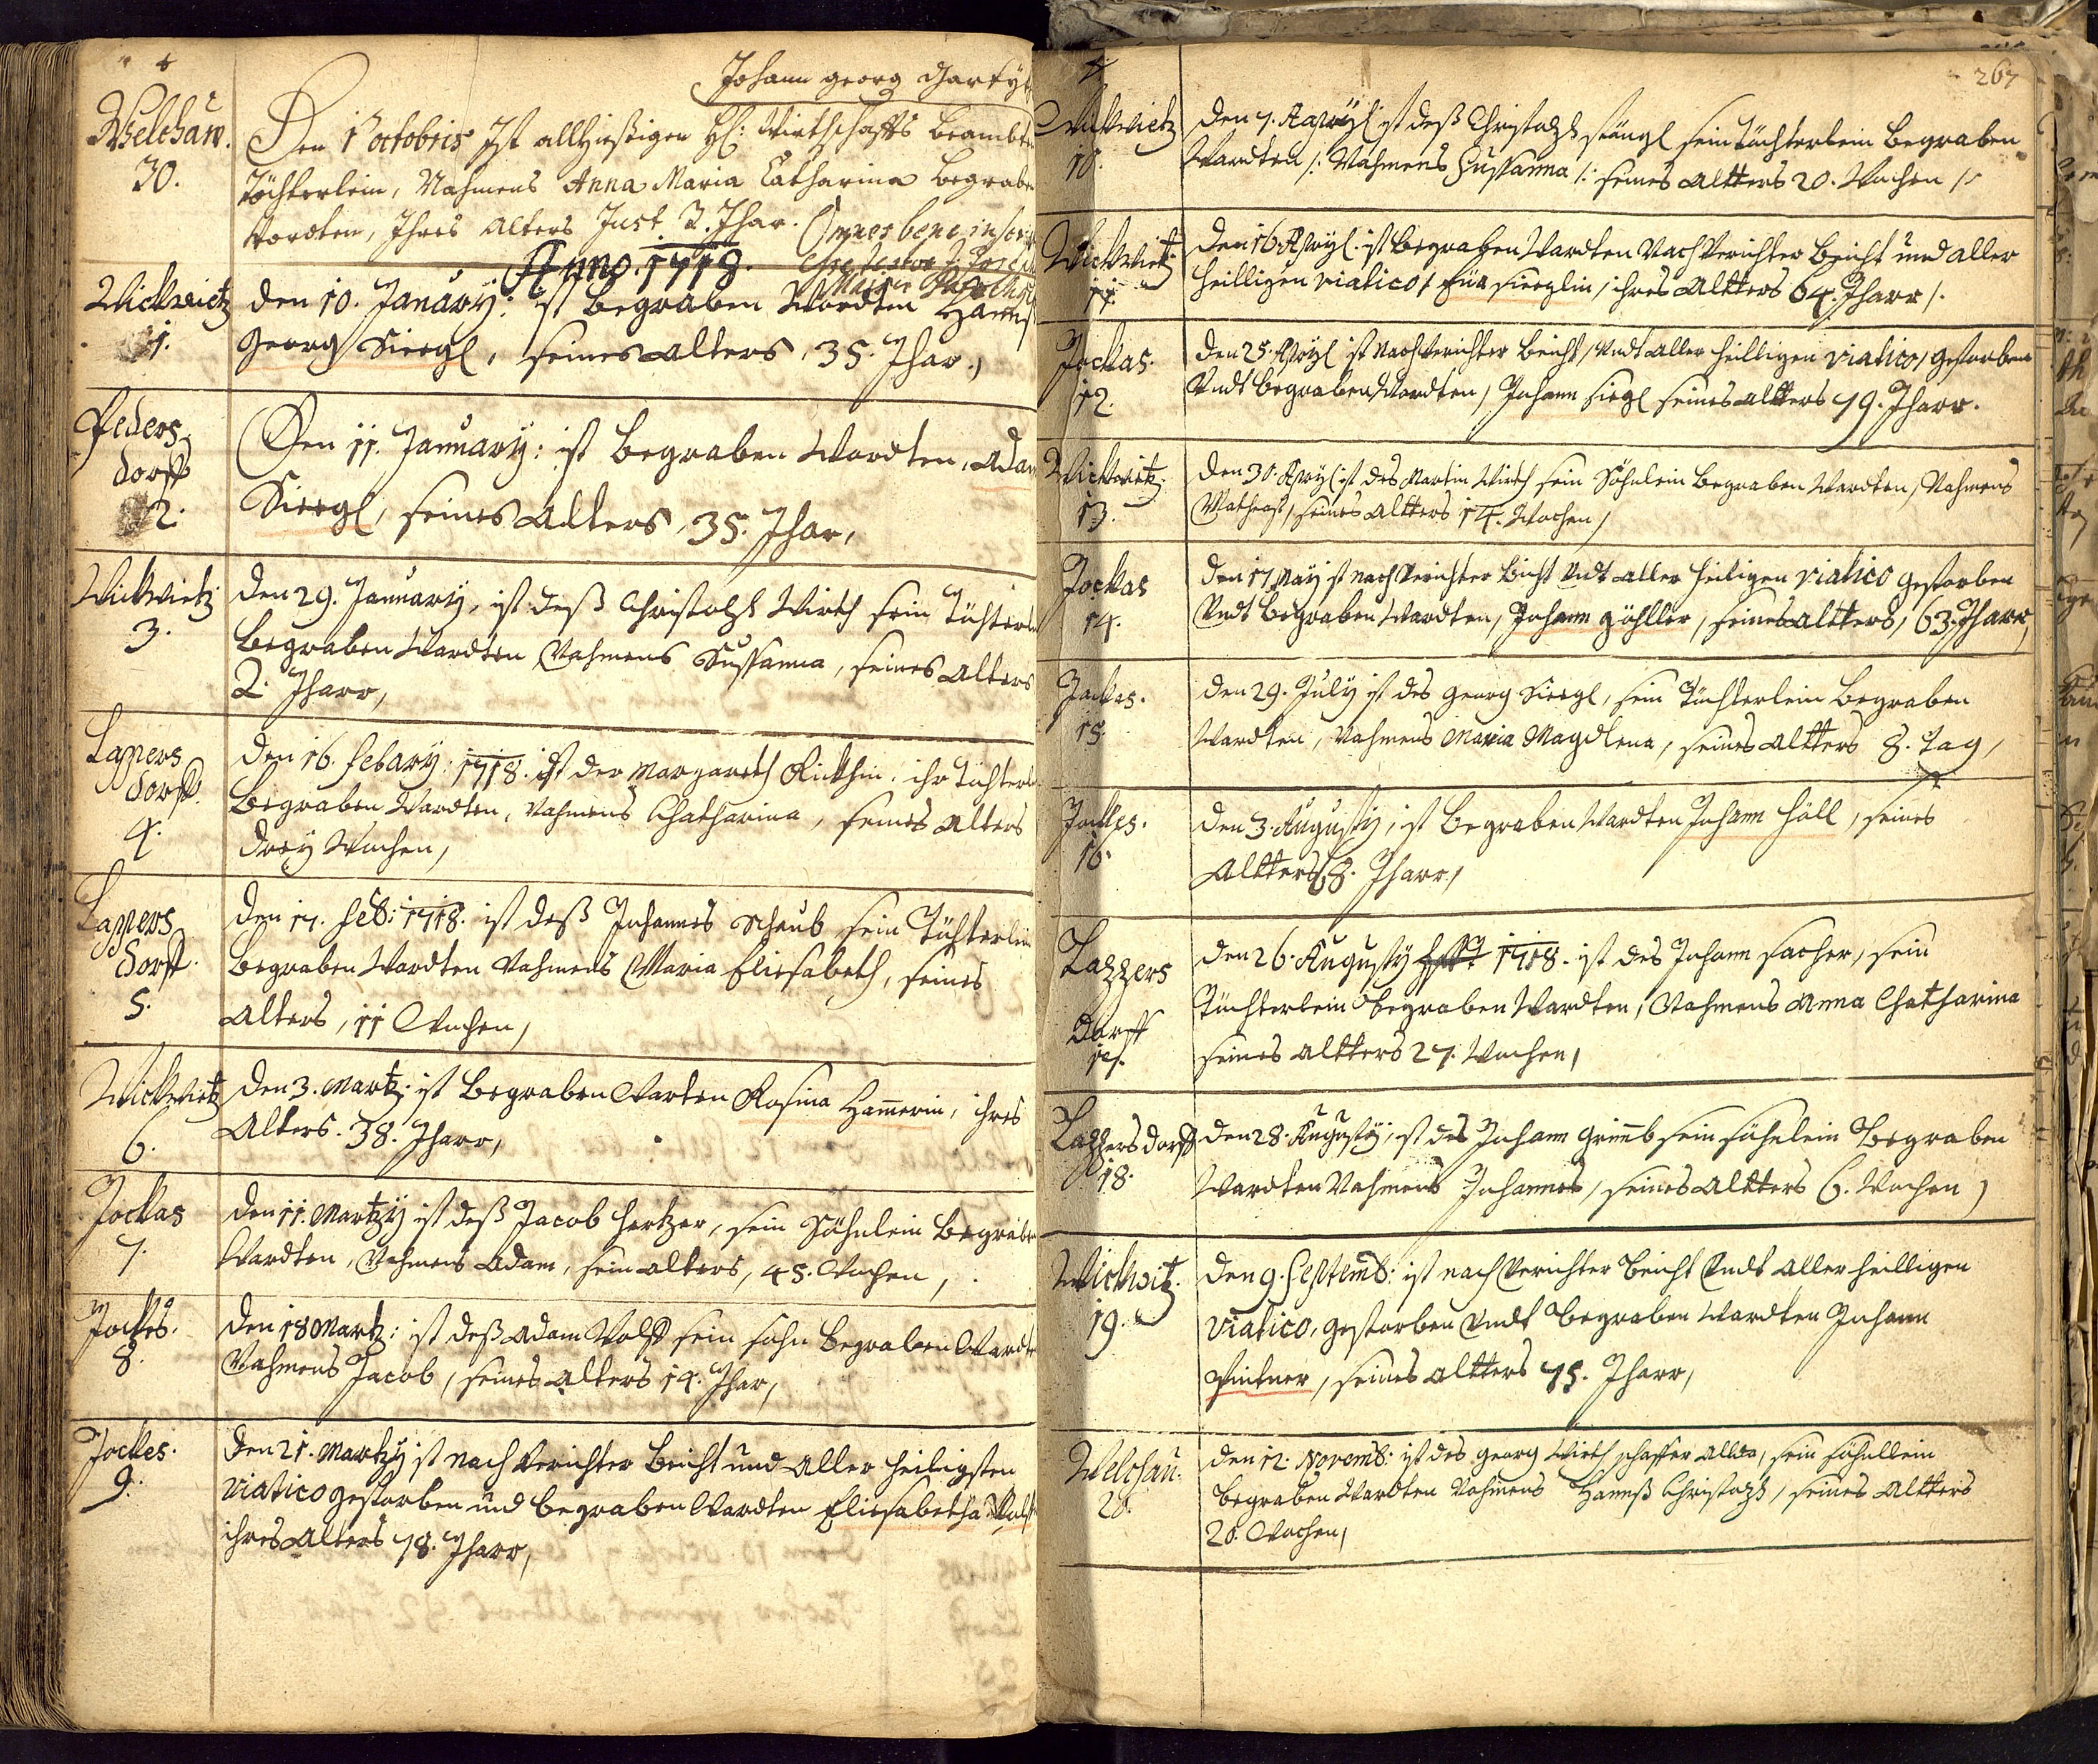 Johann georg
Welchaw. Den 1 octobris Ist allhiesigen H: Wirthschaffts beambten
30. Töchterlein, Nahmens Anna Maria Catharina begraben
Wordten, Ihres Alters Just 2. Jhar. Omnes bene
Anno. 1718.
Wickwietz den 10. January: ist begraben Wordten Hannß
1. Georg Siergl, seines alters, 35. Jhar.,
Peders Den 11. January: ist begraben Wordten, Adam
dorff
2. Siergl, seines Alters, 35. Jhar,
Wickwietz den 29. January, ist deß Christoph Wirth sein Töchterlein
3. begraben Wardten Nahmens Sussanna, seines Alters
2. Jharr,
Lappers den 16. febary: 1718. ist der Margareth ihr Töchterlein
dorff. begraben Wardten, Nahmens Chatharina, seines Alters
4. drey Wochen,
Lappers den 17. feb: 1718. ist deß Johannes Schaub sein Töchterlein
dorff. begraben Wardten Nahmens Maria Eliesabeth, seines
5. Alters, 11 Wochen,
Wickwietz den 3. Martz: ist begraben Warten Rosina Hamerin, ihres
6. Alters. 38. Jharr,
Jockas den 11. Martzy ist deß Jacob Hertzer, sein Söhnlein begraben
7. Wardten, Nahmens Adam, sein alters, 45. Wochen,
Jockes. den 18 Martz: ist deß Adam Wolff sein sohn begraben Wardten
8. Nahmens Jacob, seines Alters 14. Jhar,
Jockes. den 21. Martzy ist nach Verichter beicht und Aller heiligsten
9. Viatico gestorben und begraben Wardten Eliesabetha
ihres Alters 78. Jharr,
267
Wickwietz den 7. Aapryl ist deß Christoph stängl sein Töchterlein begraben
10. Wardten /: Nahmens Sussanna /: seines Altters 20. Wochen /:
Wickwietz den 16. Apryl. ist begraben Wardten Nach Verichter beicht und aller
11. heilligen Viatico / Eüa sierglin / ihres Altters 64. Jharr /.
Jockas. den 25. Apryl ist Nach Verichter beicht / Undt aller heilligen Viatico / gestorben
12. Undt begraben Wordten / Johann siegl seines Altters 79. Jharr.
Wickwietz. den 30. Apryl ist des Martin Wirth sein Söhnlein begraben Wardten / Nahmens
13. Matheas / seines Altters 14. Wochen /
Jockas den 17 May ist nach Verichter bicht Undt aller heiligen Viatico gestorben
14. Undt begraben Wardten, Johann zöhller, seines altters, 63. Jharr,
Jockes. den 29. July ist des georg Siergl, sein Töchterlein begraben
15. Wardten, Nahmens Maria Magdlena, seines Altters 8. Tag,
Jockes. den 3. Augusty, ist begraben Wardten Johann Höll, seines
16. Altters 68. Jharr,
Lappers den 26. Augusty 1718. ist des Johann sacher, sein
Töchterlein begraben Wardten, Nahmens Anna Chatharina
Dorff
17. seines Altters 27. Wochen,
Lappersdorff den 28. Augusty, ist des Johann grimb sein söhnlein begraben
18. Wardten Nahmens Johannes, seines Altters 6. Wochen,
Wickwitz. den 9. Septemb: ist nach Verichter beicht Undt Aller heilligen
19. Viatico, gestorben Undt begraben Wardten Johann
Pintner, seines Altters 75. Jharr,
Welchau. den 12. Novemb: ist des georg Wirth schaffer Allda, sein söhnllein
20. begraben Wardten Nahmens Hannß Christoph, seines Altters
20. Wochen,